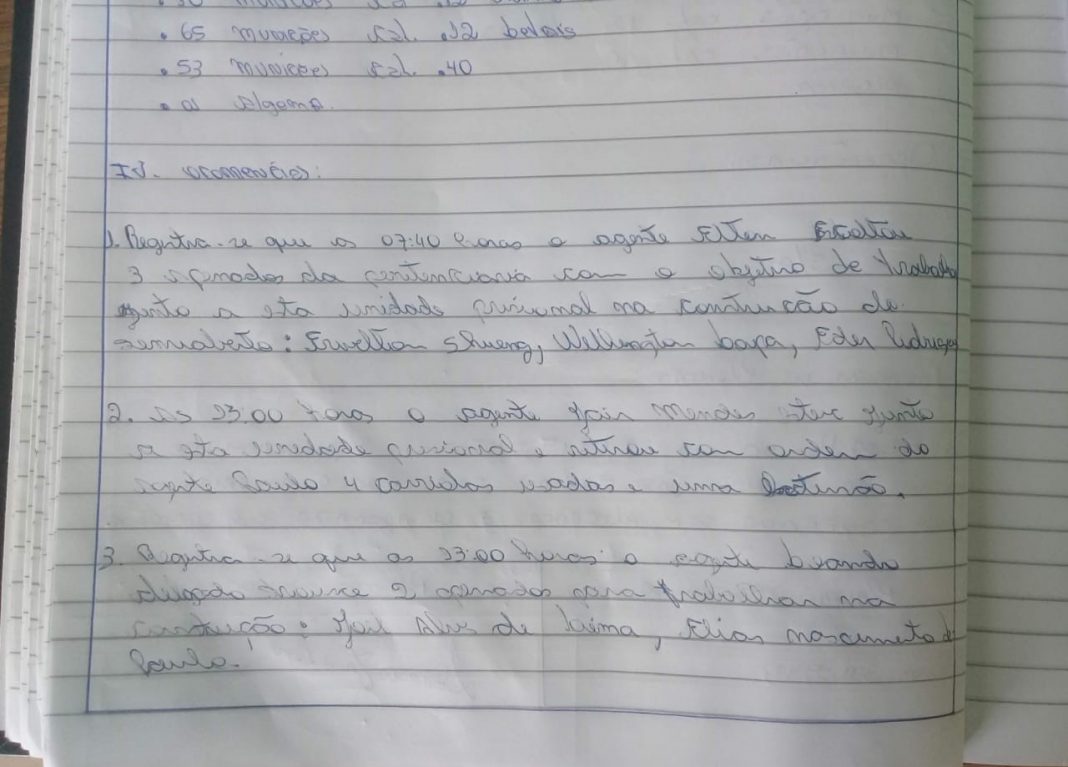 munições
• 65 munições cal. .12 balais
• 53 munições cal. .40
• 01 algema.
IV. ocorrencias:
1. Registra-se que as 07:40 horas o agente Elten Escoltou
3 apenados da penitenciaria com o objetivo de trabalho
junto a esta unidade prisional na construção de
: Erivelton Wellington Eder Rodrigues
2. as 13:00 horas o agente Jair Mendes esteve junto
a esta unidade prisional e retirou com ordem do
agente Paulo 4 usados e uma
3. Registra-se que as 13:00 horas o agente
delgado trouxe 2 apenados para trabalhar na
construção: Alves de Elias nascimeto de
Paulo.